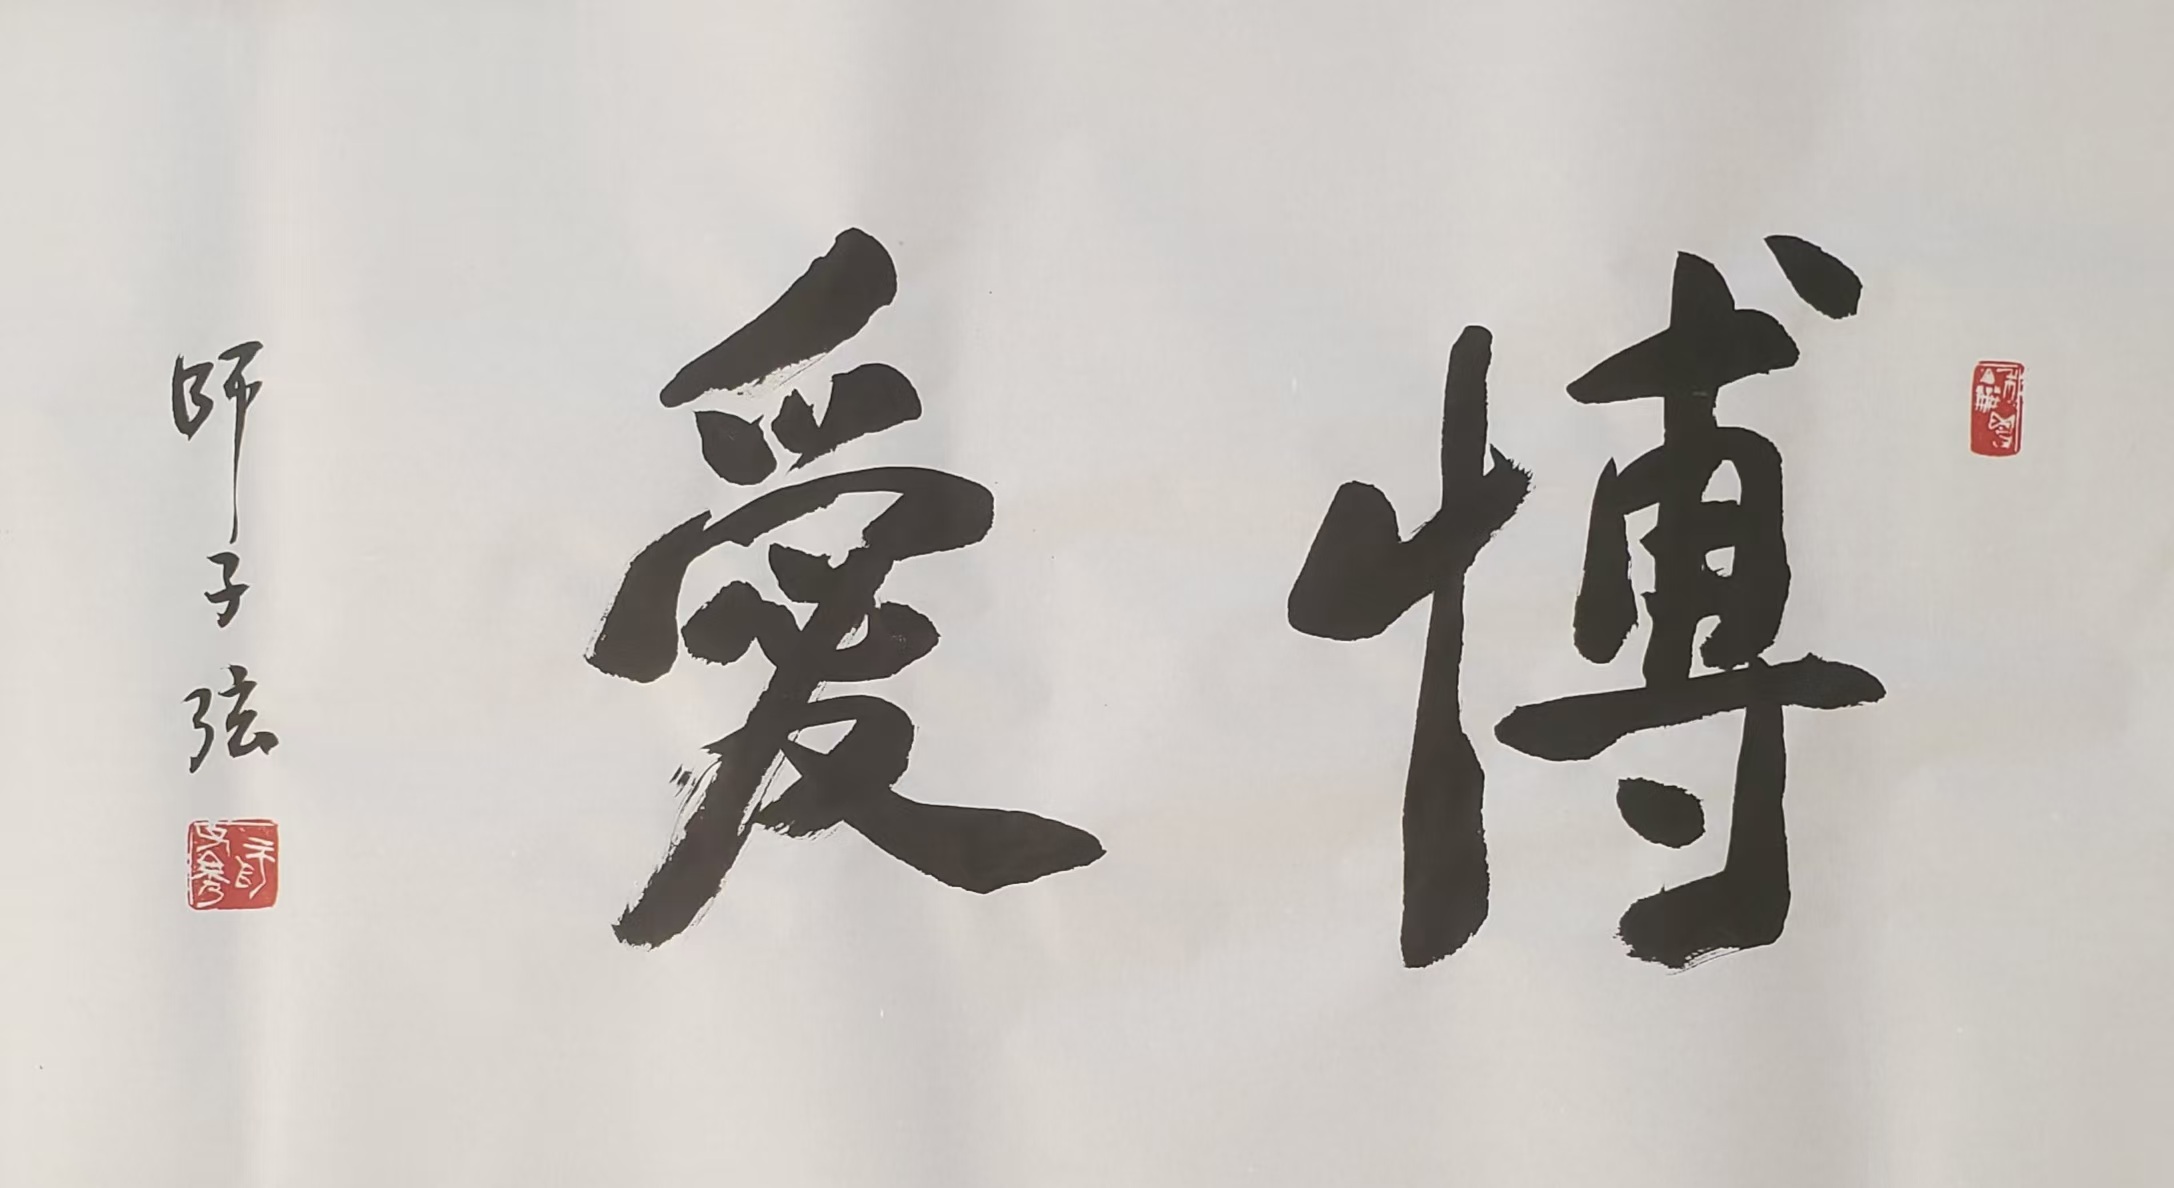 博愛
師子弦